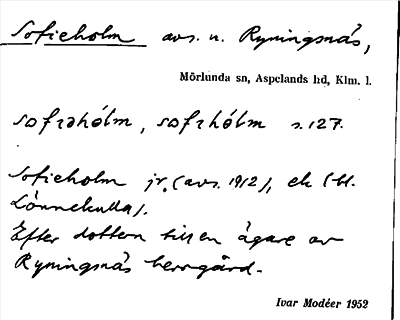 Sofieholm avs. u. Ryningsnäs,
Mörlunda sn, Aspelands hd, Klm. l.
sofıəhólm, sofıhólm s. 127.
Sofieholm jr. (avs. 1912), ek (bl.
Lönnekulla).
Efter dottern till en ägare av
Ryningsnäs herrgård.
Ivar Modéer 1952